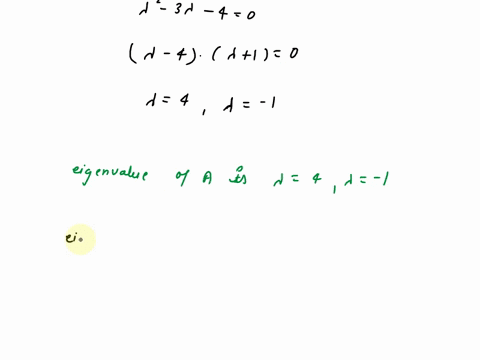 λ² - 3λ - 4 = 0
(λ - 4) · (λ + 1) = 0
λ = 4 , λ = -1
eigenvalue of A is λ = 4 , λ = -1
ei